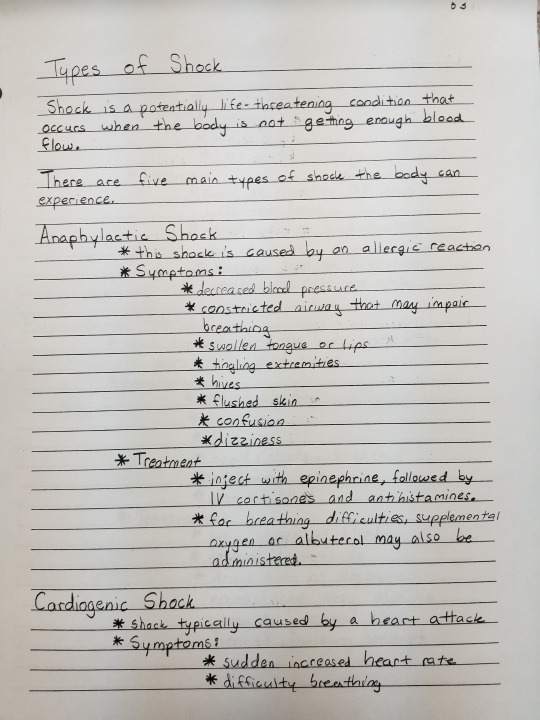 53
Types of Shock
Shock is a potentially life-threatening condition that
occurs when the body is not getting enough blood
flow.
There are five main types of shock the body can
experience.
Anaphylactic Shock
* this shock is caused by an allergic reaction
* Symptoms:
* decreased blood pressure
* constricted airway that may impair
breathing
* swollen tongue or lips
* tingling extremities
* hives
* flushed skin
* confusion
* dizziness
* Treatment
* inject with epinephrine, followed by
IV cortisones and antihistamines.
* for breathing difficulties, supplemental
oxygen or albuterol may also be
administered.
Cardiogenic Shock
* shock typically caused by a heart attack
* Symptoms:
* sudden increased heart rate
* difficulty breathing